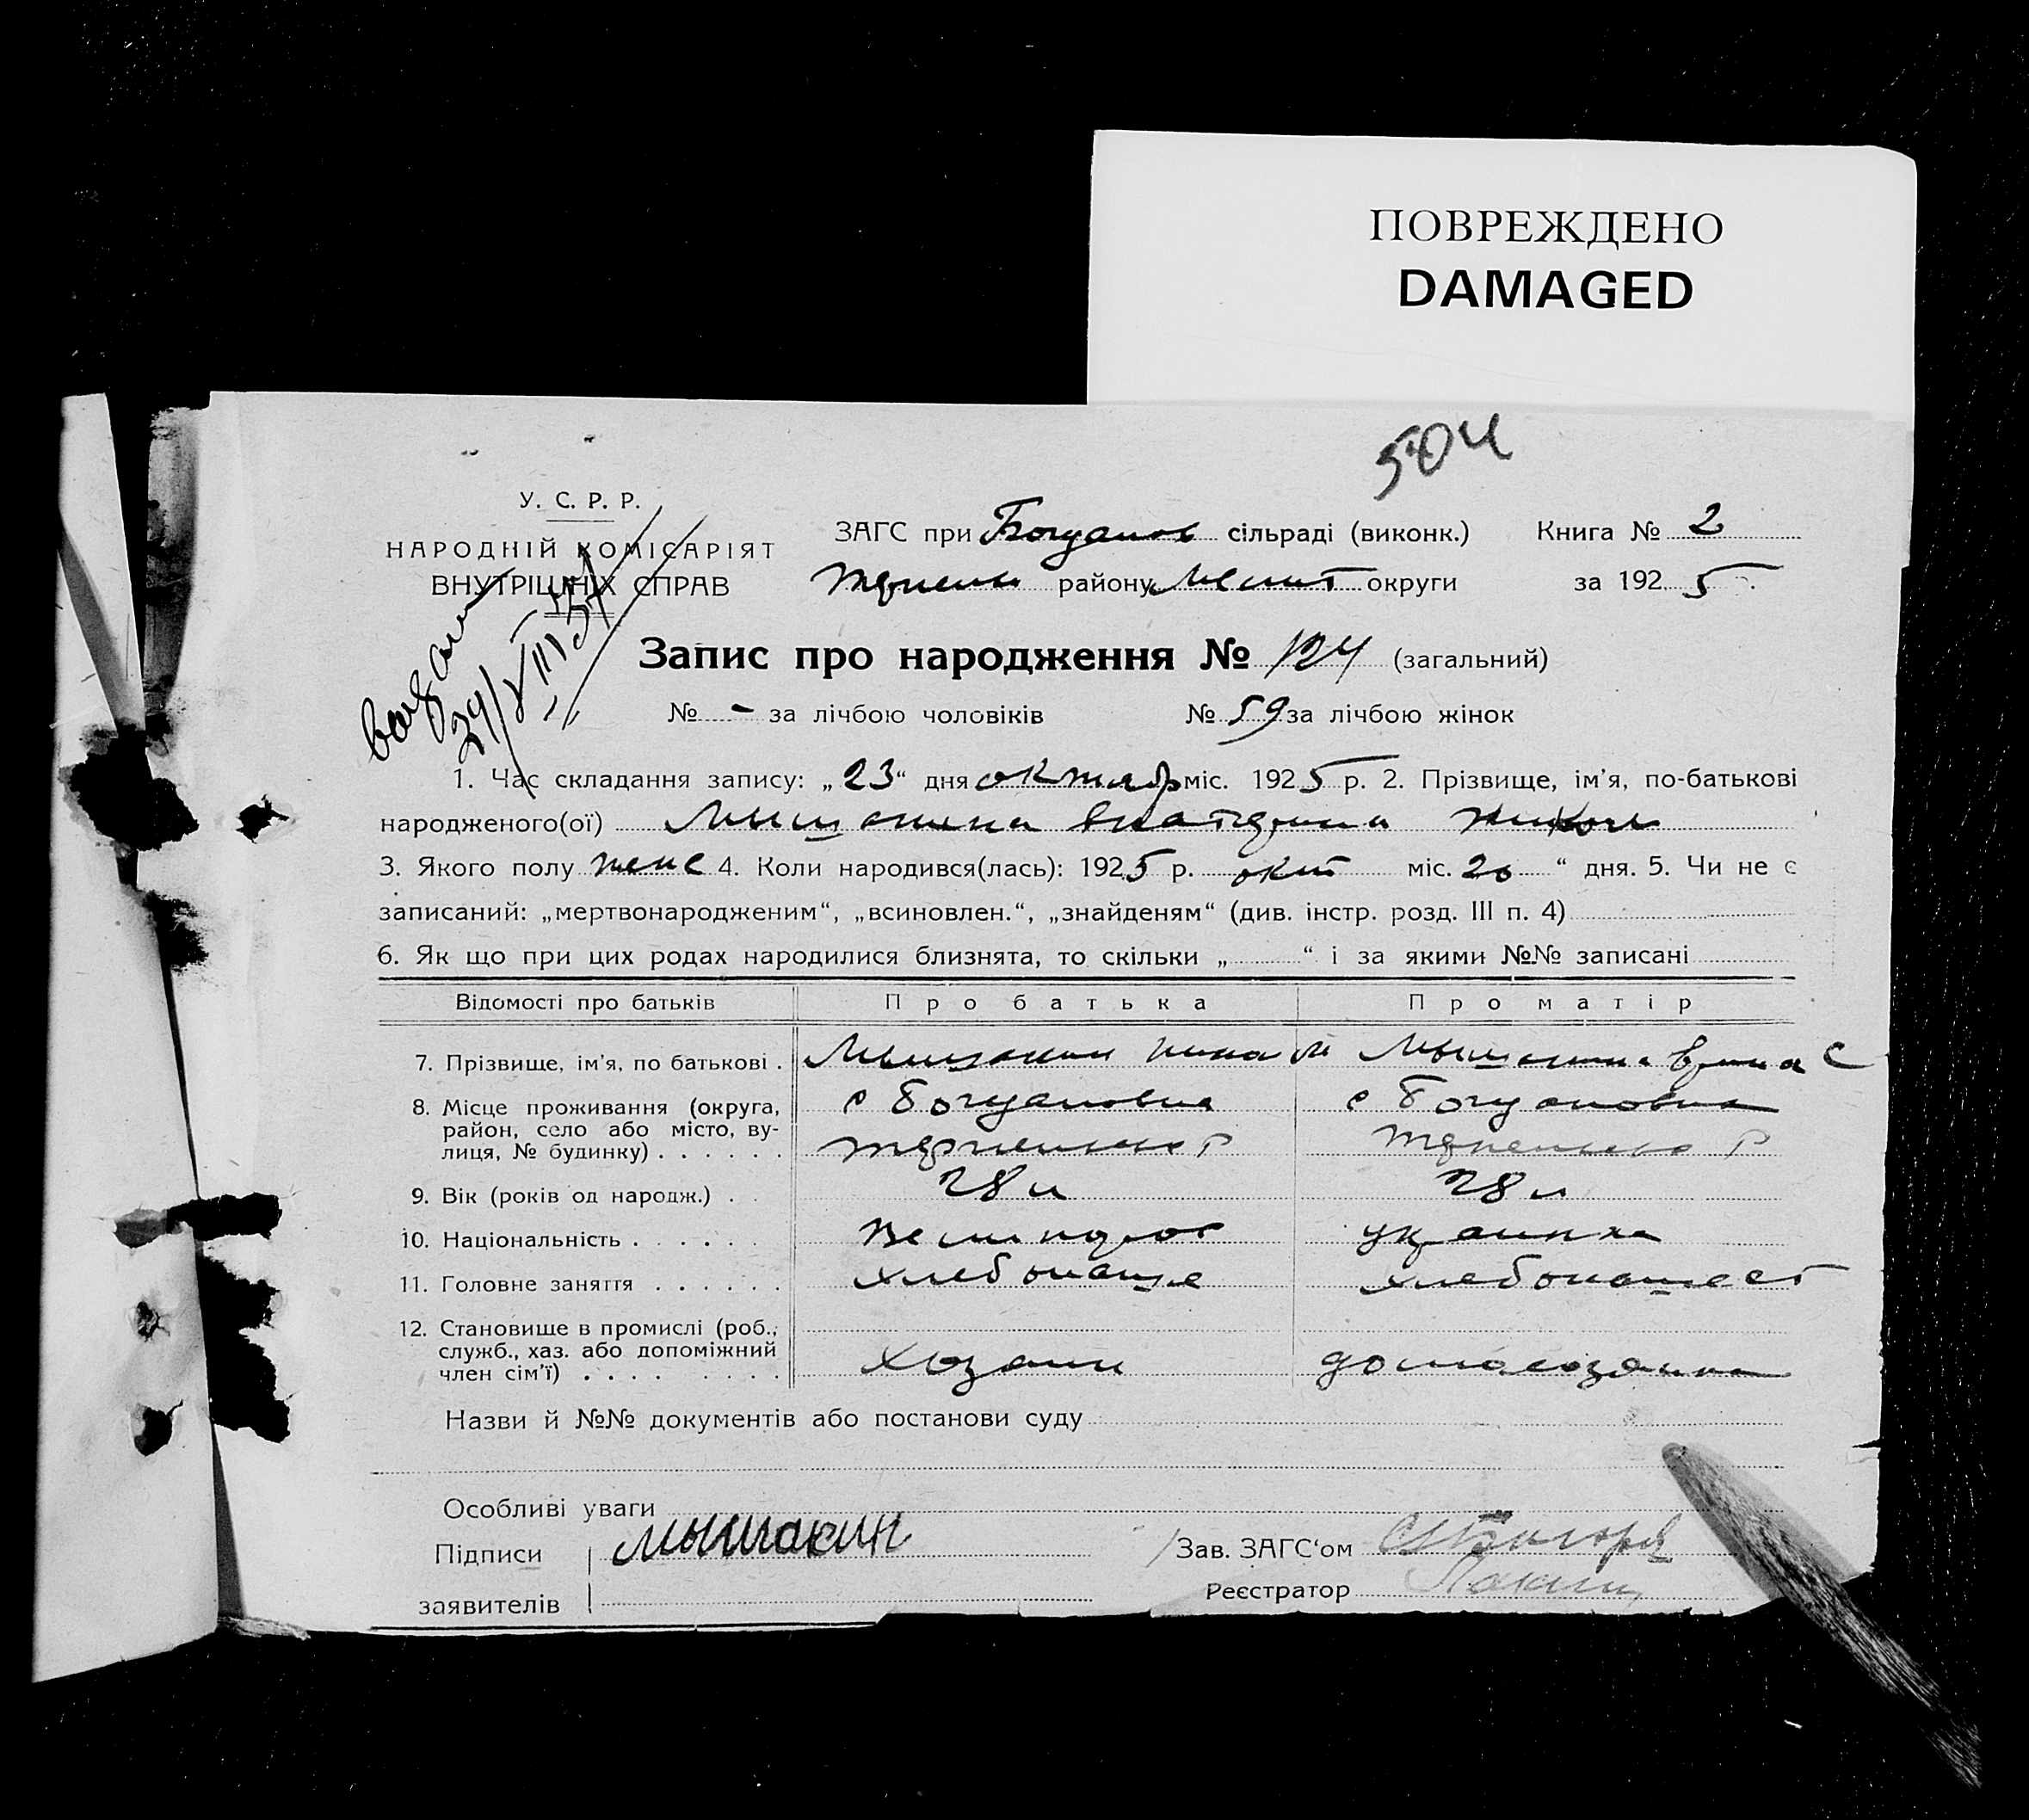 ПОВРЕЖДЕНО
DAMAGED
504
У. С. Р. Р.
НАРОДНІЙ КОМІСАРІЯТ
ВНУТРІШНІХ СПРАВ
ЗАГС при Богданов сільраді (виконк.) Книга № 2
району округи за 1925
Запис про народження № 124 (загальний)
№ - за лічбою чоловіків № 59 за лічбою жінок
1. Час складання запису: „ 23 “ дня октяб міс. 1925 р. 2. Прізвище, ім’я, по-батькові
народженого(ої) Мышакина
3. Якого полу женс 4. Коли народився(лась): 1925 р. окт міс. 20 “ дня. 5. Чи не є
записаний: „мертвонародженим“, „всиновлен.“, „знайденям“ (див. інстр. розд. III п. 4)
6. Як що при цих родах народилися близнята, то скільки „ “ і за якими №№ записані
Відомості про батьків Про батька Про матір
7. Прізвище, ім’я, по батькові . Мышакин Мышакина
8. Місце проживання (округа, с Богдановка с Богдановка
район, село або місто, ву-
лиця, № будинку) . . . . . .
9. Вік (років од народж.) . . 28 л 28 л
10. Національність . . . . . . украинка
11. Головне заняття . . . . . . хлебопаше
12. Становище в промислі (роб.,
служб., хаз. або допоміжний
член сім’ї) . . . . . . . . Хозяин домохозяйка
Назви й №№ документів або постанови суду
Особливі уваги
Підписи Мышакин Зав. ЗАГС‘ом
заявителів Реєстратор